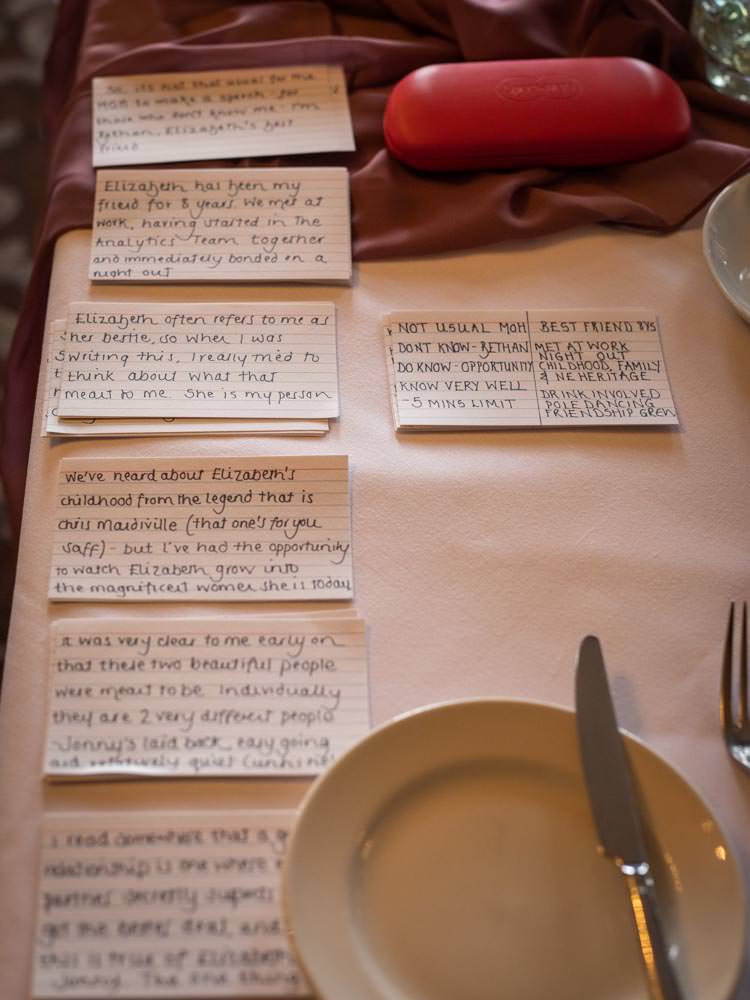 So, its not that usual for the
MOH to make a speech - for
those who don't know me - I'm
Bethan, Elizabeth's best
friend
Elizabeth has been my
friend for 8 years. We met at
work, having started in The
Analytics Team together
and immediately bonded on a
night out
Elizabeth often refers to me as
her bestie, so when I was
writing this, I really tried to
think about what that
meant to me. She is my person
NOT USUAL MOH
DONT KNOW - BETHAN
DO KNOW - OPPORTUNITY
KNOW VERY WELL
- 5 MINS LIMIT
BEST FRIEND 8YS
MET AT WORK
NIGHT OUT
CHILDHOOD, FAMILY
& NE HERITAGE
DRINK INVOLVED
POLE DANCING
FRIENDSHIP GREW
We've heard about Elizabeth's
childhood from the legend that is
Chris (that one's for you
Saff) - but I've had the opportunity
to watch Elizabeth grow into
the magnificent women she is today
It was very clear to me early on
that these two beautiful people
were meant to be. Individually
they are 2 very different people
- Jonny's laid back, easy going
and relatively quiet
I read somewhere that a
relationship is one where
partner secretly
got the better deal, and
this is true of Elizabeth
Jonny. The one thing